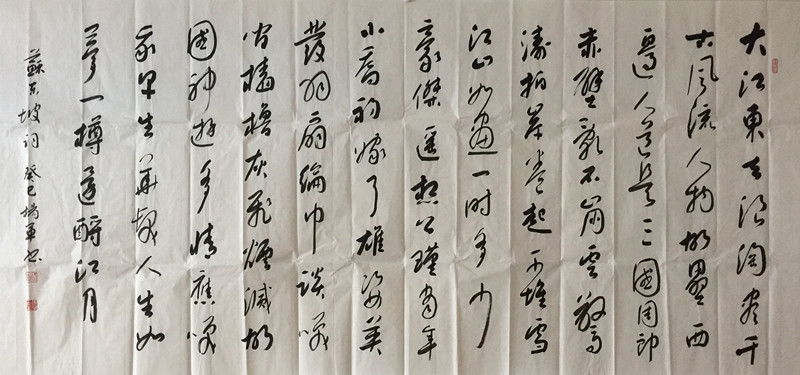 大江東去浪淘盡千
古風流人物故壘西
邊人道是三國周郎
赤壁亂石崩雲驚
濤拍岸卷起千堆雪
江山如畫一時多少
豪傑遥想公瑾當年
小喬初嫁了雄姿英
發羽扇綸巾談笑
間檣櫓灰飛煙滅故
國神遊多情應笑
我早生華髮人生如
夢一樽還酹江月
蘇東坡詞 癸巳 楊軍書